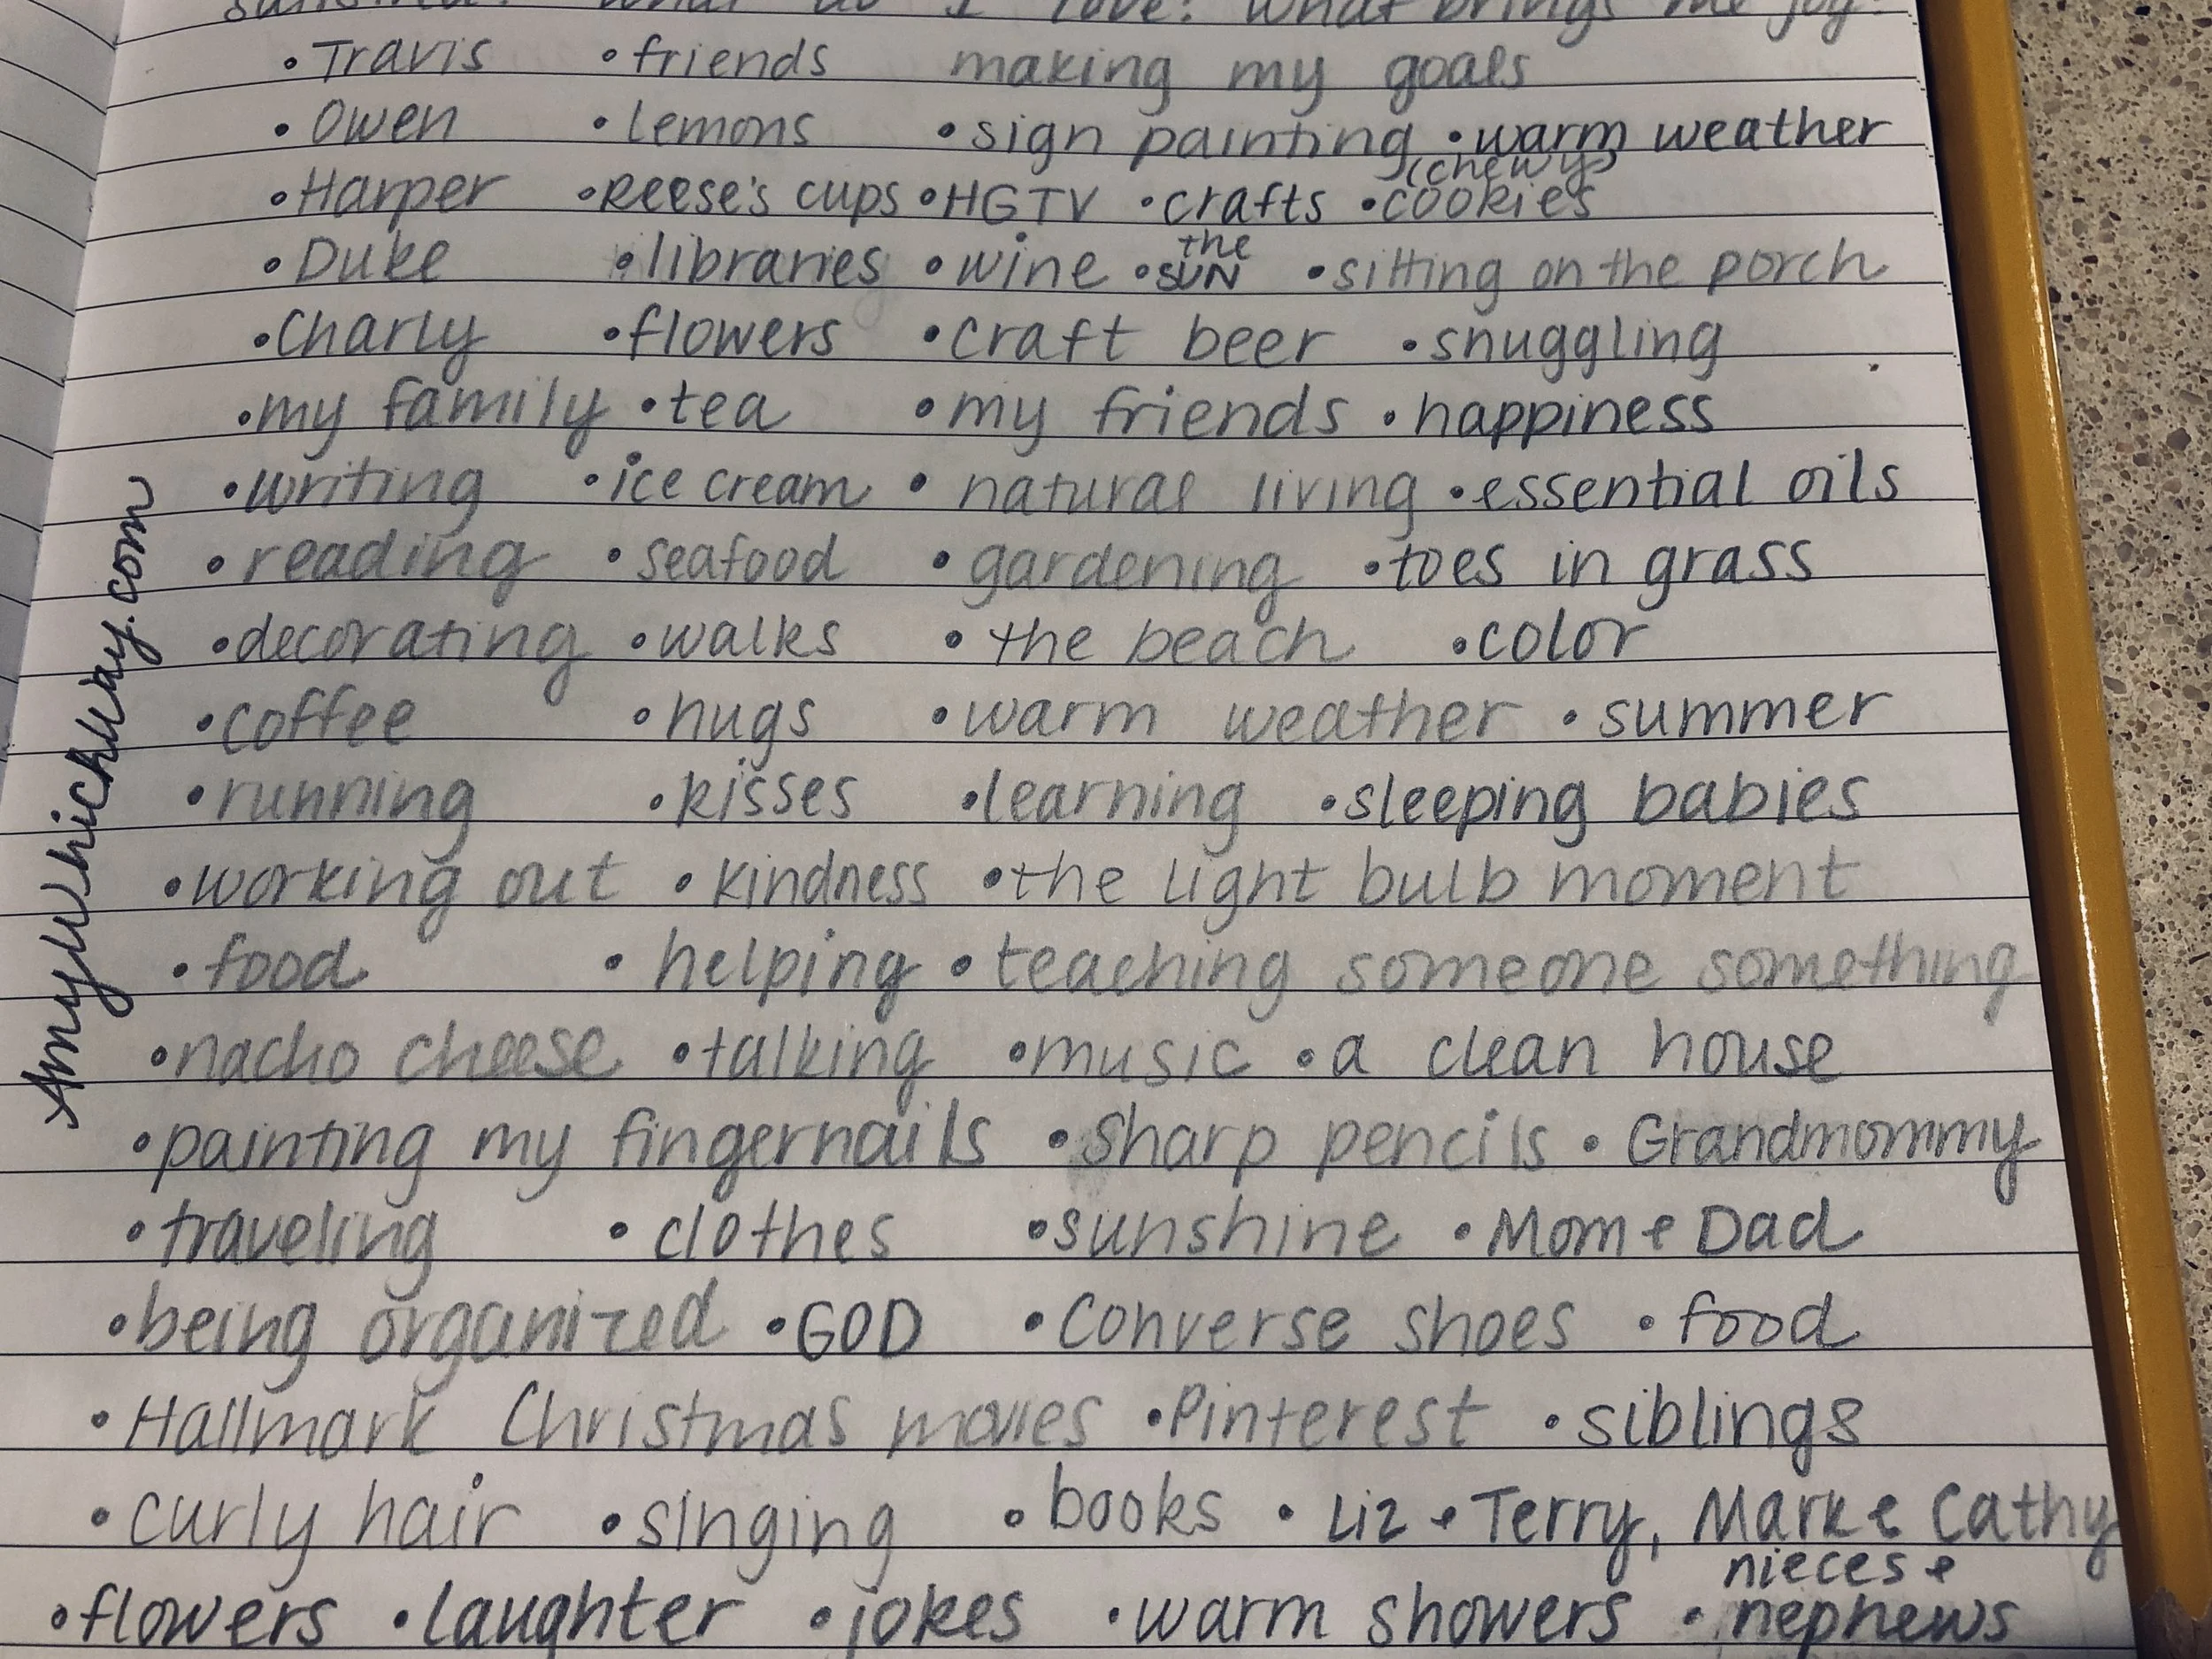 What do I love? What brings me joy?
• Travis • friends making my goals
• Owen • lemons • sign painting • warm weather
• Harper • Reese's cups • HGTV • crafts • (chewy) cookies
• Duke • libraries • wine • the SUN • sitting on the porch
• Charly • flowers • craft beer • snuggling
• my family • tea • my friends • happiness
• writing • ice cream • natural living • essential oils
• reading • seafood • gardening • toes in grass
• decorating • walks • the beach • color
• coffee • hugs • warm weather • summer
• running • kisses • learning • sleeping babies
• working out • kindness • the light bulb moment
• food • helping • teaching someone something
• nacho cheese • talking • music • a clean house
• painting my fingernails • sharp pencils • Grandmommy
• traveling • clothes • sunshine • Mom & Dad
• being organized • GOD • Converse shoes • food
• Hallmark Christmas movies • Pinterest • siblings
• curly hair • singing • books • Liz & Terry, Mark & Cathy
• flowers • laughter • jokes • warm showers • nieces & nephews
AmyWhichWay.com